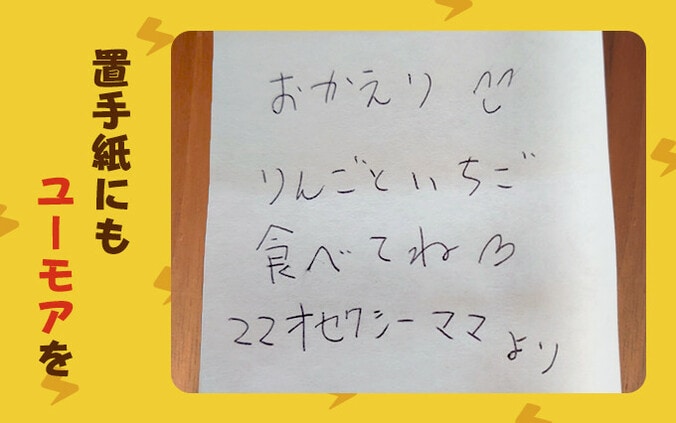 置手紙にも
ユーモアを
おかえり ^^
りんごといちご
食べてね
22才セクシーママ より